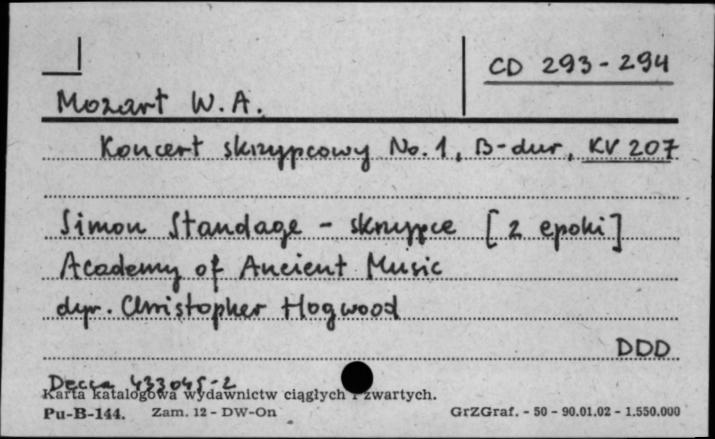 CD 293-294
Mozart W.A.
Koncert skrzypcowy No. 1, B-dur, KV 207
Simon Standage - skrzypce [z epoki]
Academy of Ancient Music
dyr. Christopher Hogwood
DDD
Decca 433045-2
Karta katalogowa wydawnictw ciągłych i zwartych.
Pu-B-144. Zam. 12 - DW-On GrZGraf. - 50 - 90.01.02 - 1.550.000